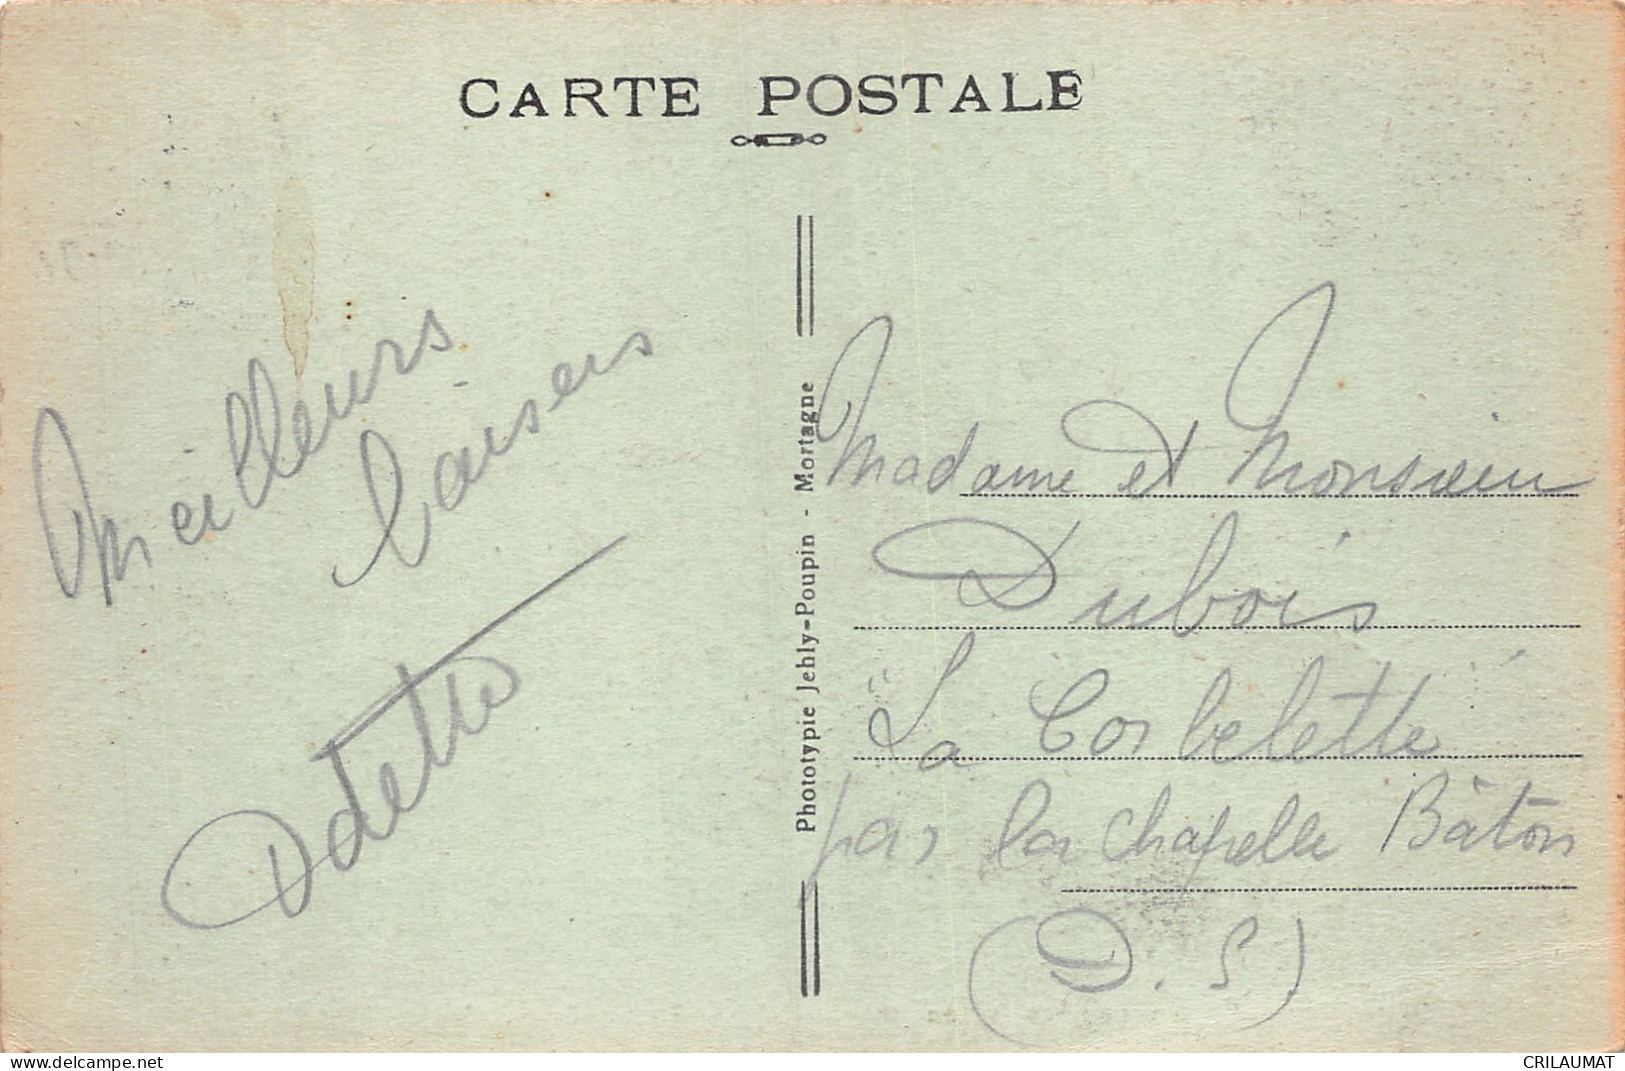 CARTE POSTALE
Meilleurs
baisers
Odette
Phototypie Jehly-Poupin - Mortagne
Madame et Monsieur
Dubois
"La Corbelette"
par la Chapelle Bâton
(D. S)
www.delcampe.net
CRILAUMAT